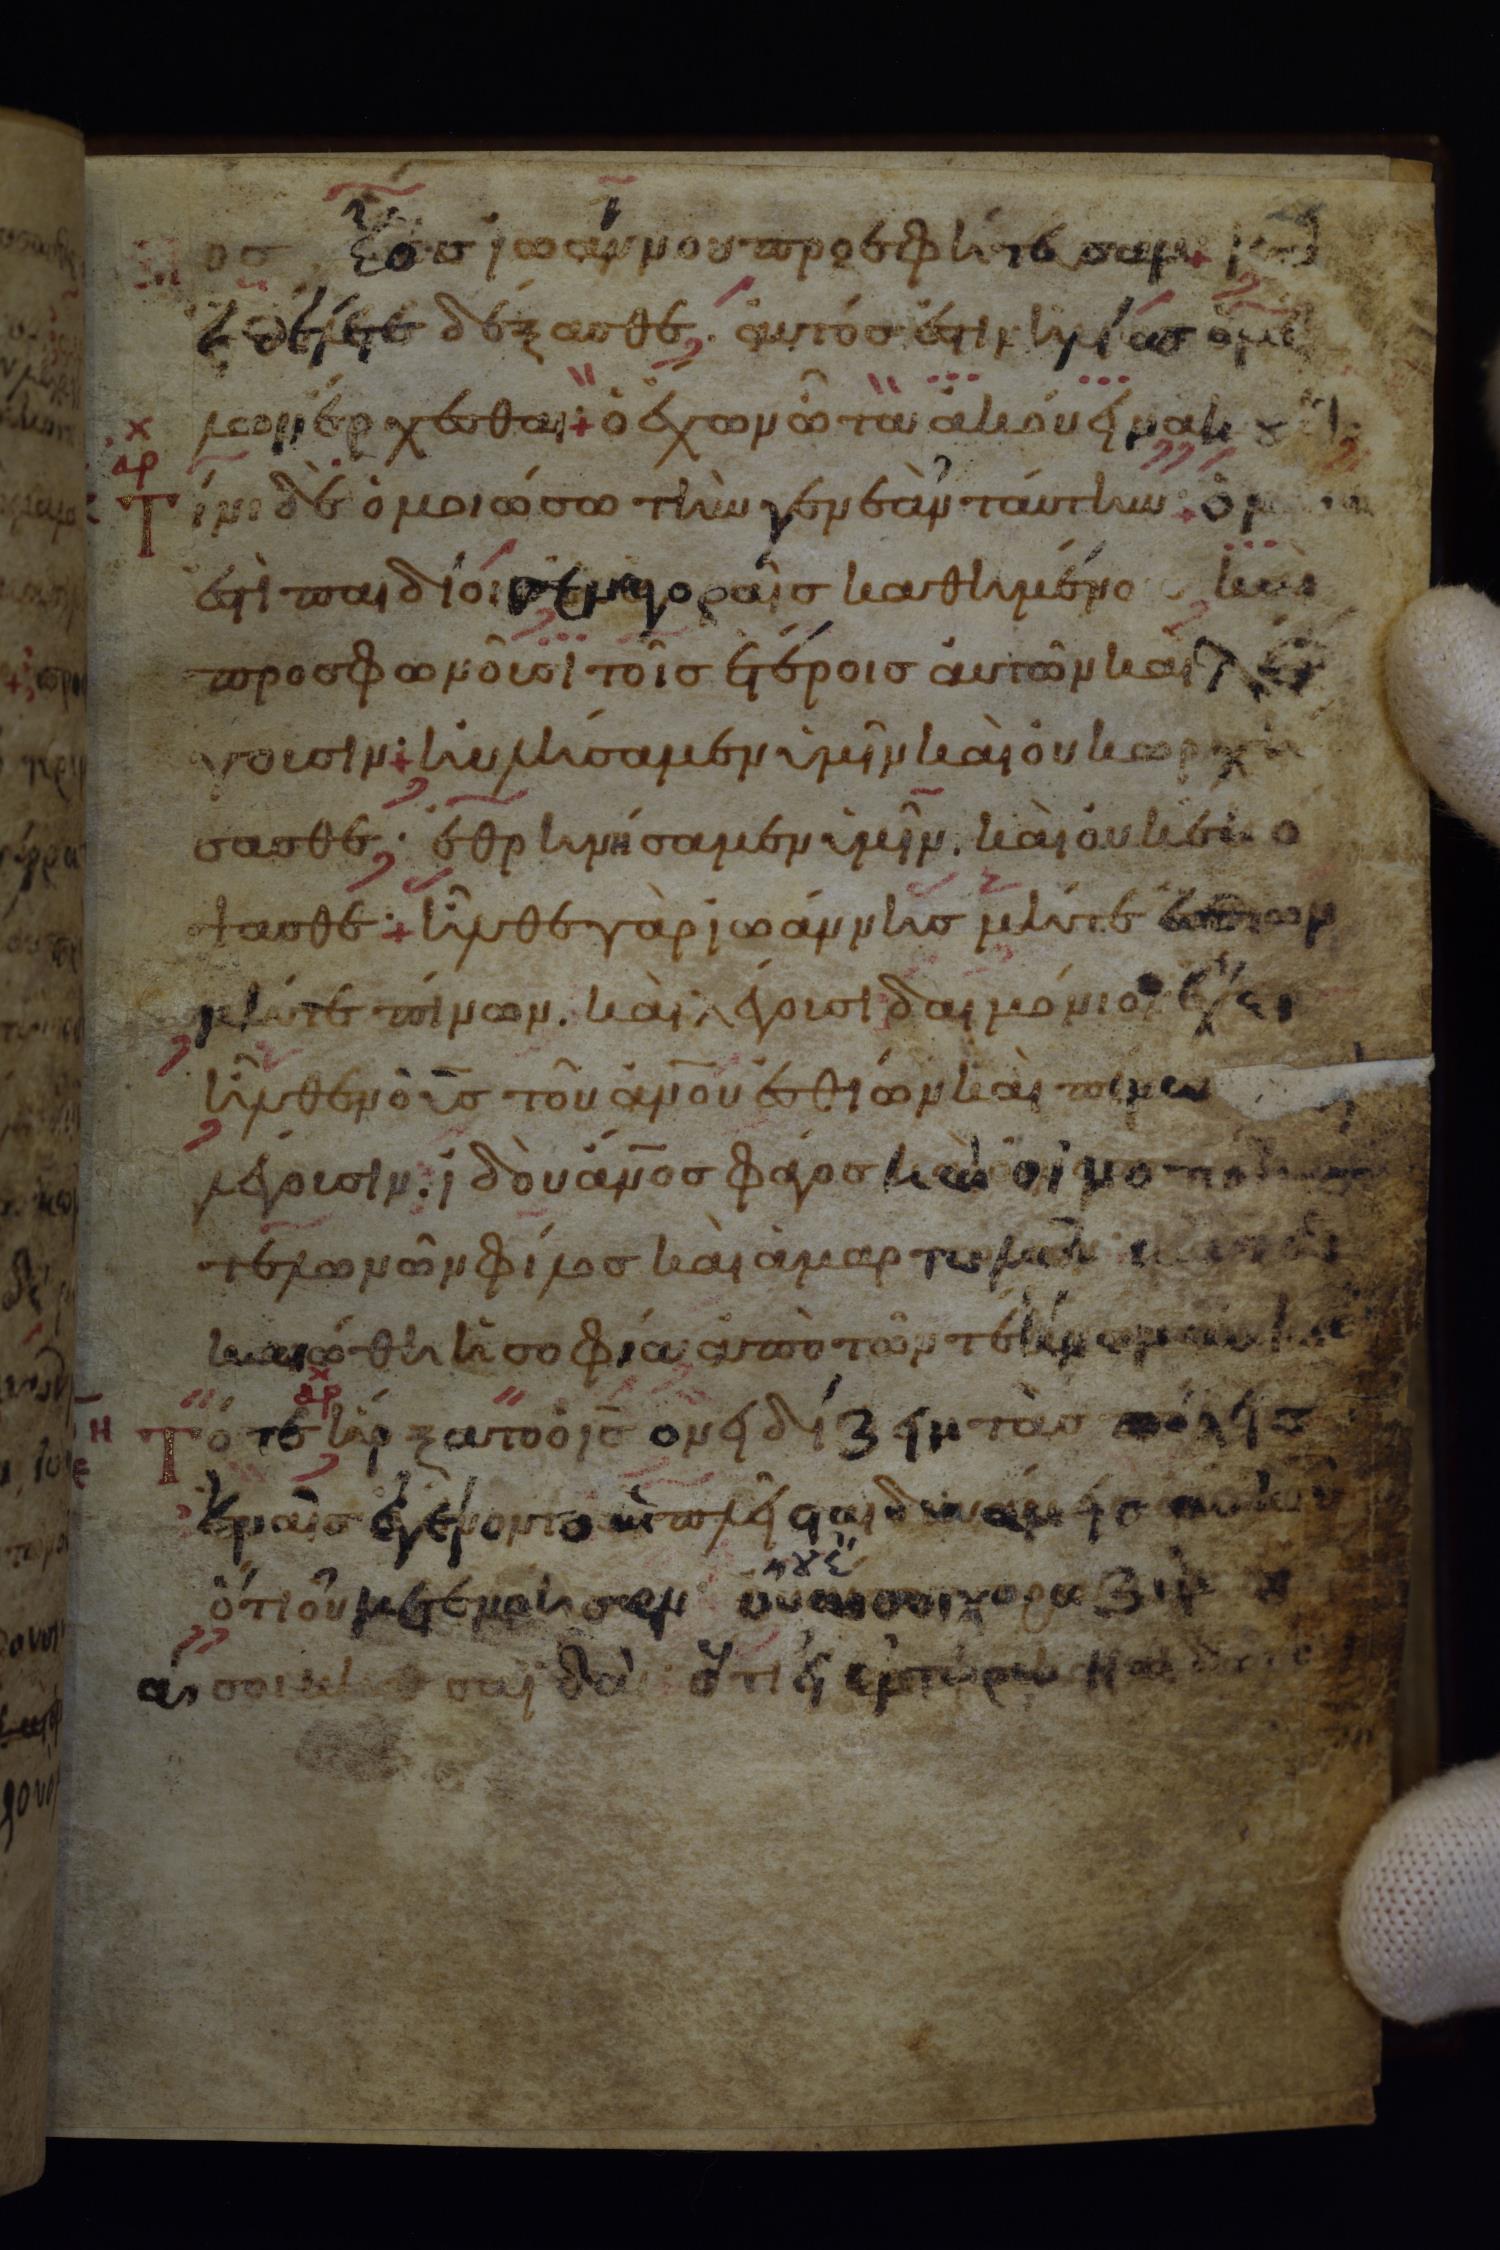 οσ ἕωσ ἰωάννου προεφήτευσαν+ κ(αὶ) εἰ
θέλετε δέξασθε· ἀυτόσ ἐστιν ἡλίασ ὁ μέλ
λων ἔρχεσθαι+ ὁ ἔχων ὦτα ἀκούειν ἀκουέτω
Τίνι δὲ ὁμοιώσω τὴν γενεὰν τάυτην· ὁμοία
ἐστὶ παιδίοισ ἐν ἀγοραῖσ καθημένοισ καὶ
προσφωνοῦσι τοῖσ ἑτέροισ ἀυτῶν καὶ λέ
γουσιν+ ηὐλήσαμεν ὑμῖν καὶ ὀυκ ωρχή
σασθε· ἐθρηνήσαμεν ὑμῖν. καὶ ὀυκ ἐκό
ψασθε·+ ἦλθε γὰρ ἰωάννησ μήτε ἐσθίων
μήτε πίνων. καὶ λέγουσι δαιμόνιον ἔχει
ἦλθεν ὁ υ̅σ̅ τοῦ ἀν̅ου ἐσθίων καὶ πίνων
λέγουσιν· ἰδοὺ ἄν̅οσ φάγοσ καὶ οἰνοπότησ
τελωνῶν φίλοσ καὶ ἁμαρτωλῶν
καιώθη ἡ σοφία ἀπὸ τῶν τέκνων ἀυτῆσ
Τότε ἤρξατο ὁ ι̅σ̅ ονειδίζειν τὰσ πόλεισ
ἐν αἷσ ἐγένοντο ἁι πλεῖσται δυνάμεισ ἀυτοῦ
ὅτι οὐ μετενόησαν οὐαί σοι χοραζὶν ουαί
σοι βηθσαϊδὰ· ὅτι εἰ ἐν τύρω και σιδῶνι